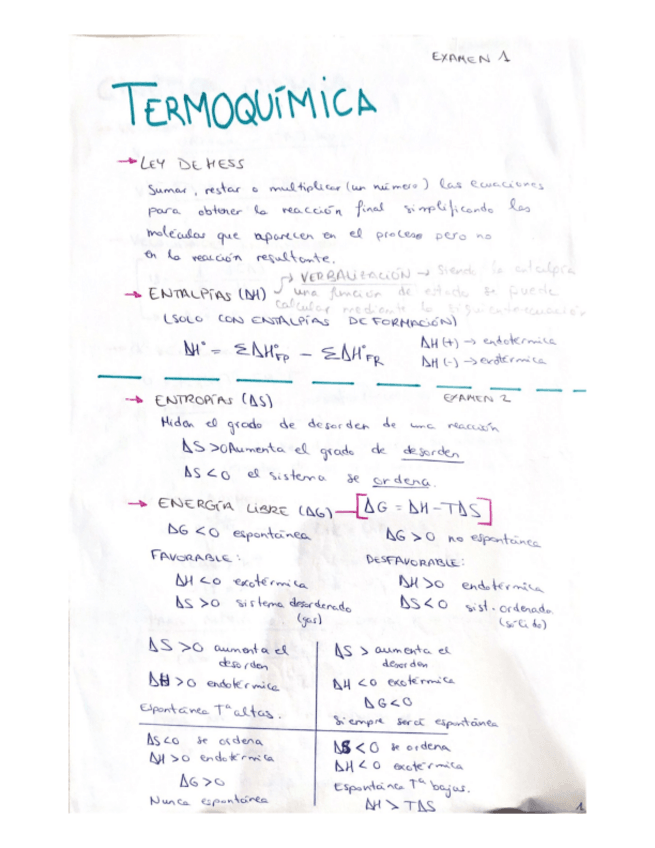 EXAMEN 1
TERMOQUÍMICA
→ LEY DE HESS
Sumar, restar o multiplicar (un número) las ecuaciones
para obtener la reacción final simplificando las
moléculas que aparecen en el proceso pero no
en la reacción resultante.
→ VERBALIZACIÓN → Siendo la entalpía
una función de estado se puede
calcular mediante la siguiente ecuación
→ ENTALPÍAS (ΔH)
(SOLO CON ENTALPÍAS DE FORMACIÓN)
ΔH° = ΣΔH°FP - ΣΔH°FR
ΔH (+) → endotérmica
ΔH (-) → exotérmica
→ ENTROPÍAS (ΔS)
EXAMEN 2
Miden el grado de desorden de una reacción
ΔS >0 Aumenta el grado de desorden
ΔS <0 el sistema se ordena.
→ ENERGÍA LIBRE (ΔG) — [ΔG = ΔH - TΔS]
ΔG <0 espontánea
ΔG >0 no espontánea
FAVORABLE:
ΔH <0 exotérmica
ΔS >0 sistema desordenado
(gas)
DESFAVORABLE:
ΔH >0 endotérmica
ΔS <0 sist. ordenado
(sólido)
ΔS >0 aumenta el
desorden
ΔH >0 endotérmica
Espontánea Tª altas.
ΔS > aumenta el
desorden
ΔH <0 exotérmica
ΔG <0
Siempre será espontánea
ΔS <0 se ordena
ΔH >0 endotérmica
ΔG >0
Nunca espontánea
ΔS <0 se ordena
ΔH <0 exotérmica
Espontánea Tª bajas.
ΔH > TΔS
1